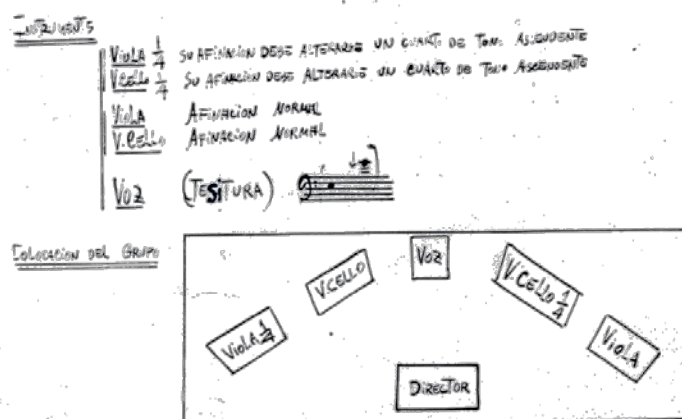 INSTRUMENTS
VIOLA 1/4 SU AFINACION DEBE ALTERARSE UN CUARTO DE TONO ASCENDENTE
V.CELLO 1/4 SU AFINACION DEBE ALTERARSE UN CUARTO DE TONO ASCENDENTE
VIOLA AFINACION NORMAL
V.CELLO AFINACION NORMAL
VOZ (TESITURA)
COLOCACION DEL GRUPO
VOZ
V.CELLO
V.CELLO 1/4
VIOLA 1/4
VIOLA
DIRECTOR